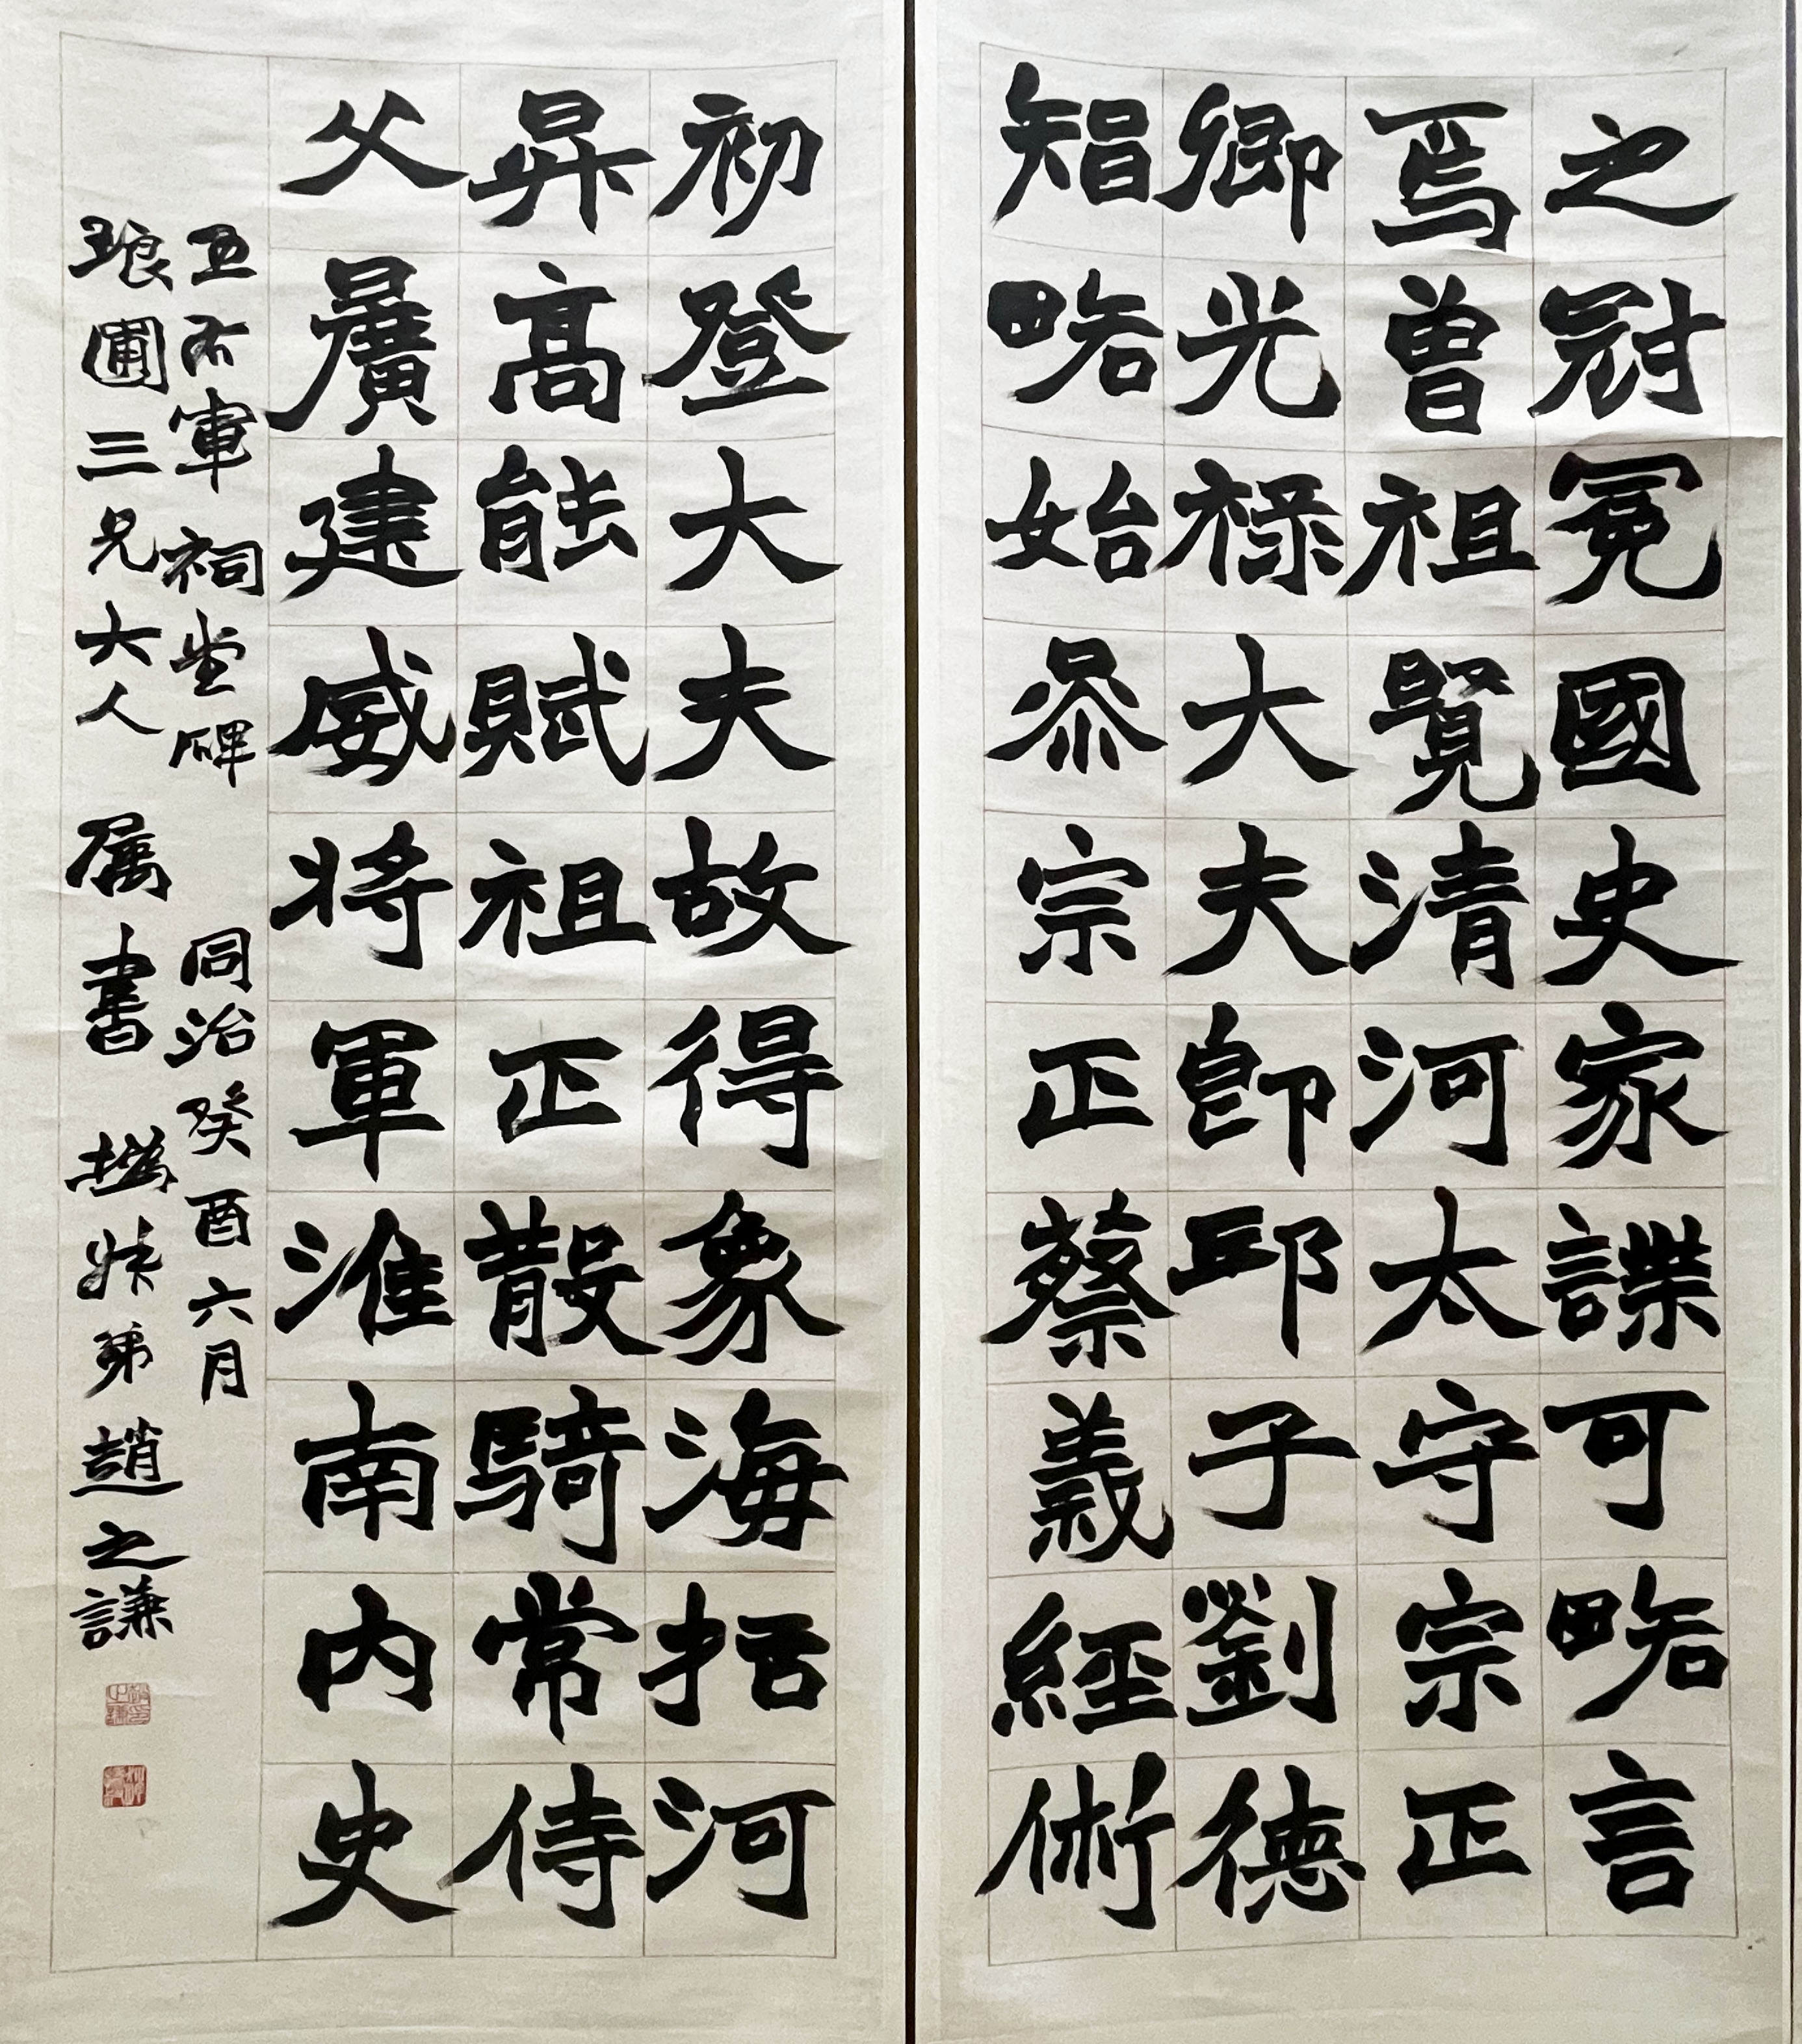 之冠冕國史家諜可略言
焉曾祖覽清河太守宗正
卿光祿大夫即邱子劉德
智略始叅宗正蔡義經術
初登大夫故得象海括河
昇高能賦祖正散騎常侍
父曠建威將軍淮南内史
王右軍祠堂碑 同治癸酉六月
琅圃三兄大人 属書 撝叔弟趙之謙